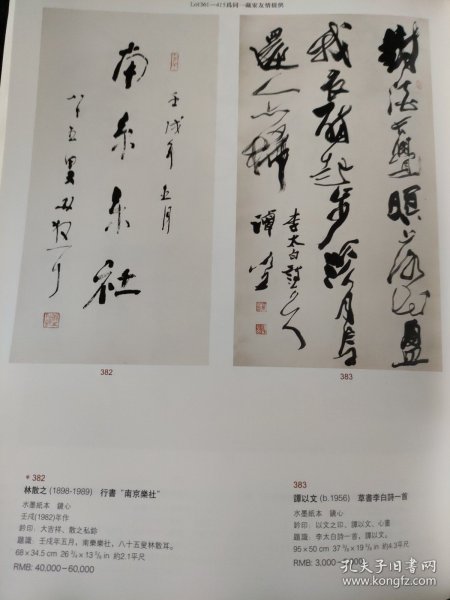 Lot361—415為同一藏家友情提供
南京樂社
壬戌年五月
八十五叟林散耳
對酒不覺暝落花盈
我衣醉起步溪月鳥
還人亦稀
李太白詩一首
譚以文
382
383
* 382
林散之 (1898-1989) 行書“南京樂社”
水墨紙本 鏡心
壬戌(1982)年作
鈐印：大吉祥、散之私鉨
題識：壬戌年五月，南樂樂社，八十五叟林散耳。
68×34.5 cm 26 3/4×13 5/8 in 約2.1平尺
RMB: 40,000-60,000
383
譚以文 (b.1956) 草書李白詩一首
水墨紙本 鏡心
鈐印：以文之印、譚以文、心畫
題識：李太白詩一首，譚以文。
95×50 cm 37 3/8×19 5/8 in 約4.3平尺
RMB: 3,000-
孔夫子旧书网